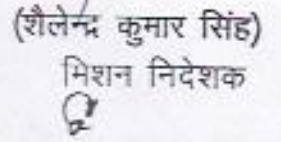 (शैलेन्द्र कुमार सिंह)
मिशन निदेशक